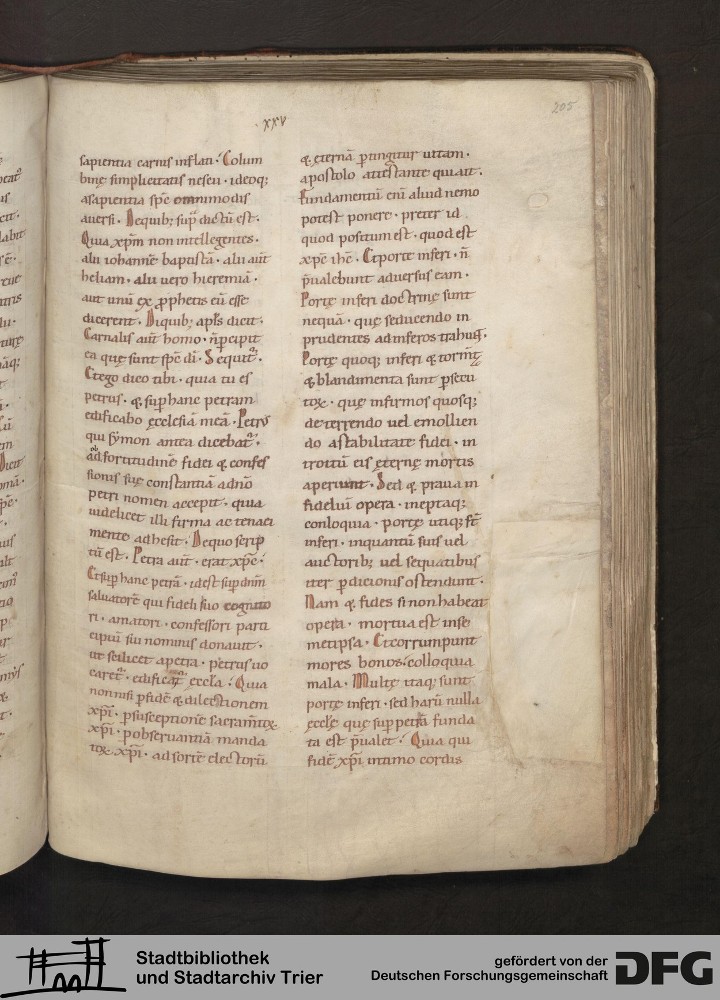 ·xxv·
205
sapientia carnis inflati. Colum
binę simplicitatis nescii. ideoq;
asapientia spē omnimodis
auersi. Dequib; sup̄ dictū est.
Quia xp̄m non intellegentes.
alii iohannē baptistā. alii aut̄
heliam. alii uero hieremiā.
aut unū ex ꝓphetis eū esse
dicerent. Diquib; apl̄s dicit.
Carnalis aut̄ homo. n̄ p̄cipit
ea quę sunt spē dī. Sequit̄.
Et ego dico tibi. quia tu es
petrus. & sup hanc petram
edificabo ęcclesiā meā. Petrus
qui symon antea dicebat̄.
ob fortitudinē fidei & confes
sionis suę constantiā adnō
petri nomen accepit. quia
uidelicet illi firma ac tenaci
mente adhesit. Dequo scrip
tū est. Petra aut̄. erat xp̄c.
Et sup hanc petrā. idest sup dn̄m
saluatorē qui fideli suo cognito
ri. amatori. confessori parti
cipiū sui nominis donauit.
ut scilicet apetra. petrus uo
caret̄. edificat̄ ęccl̄a. Quia
nonnisi p fidē & dilectionem
xp̄i. p susceptionē sacram̄toꝝ
xp̄i. p obseruantiā manda
toꝝ xp̄i. ad sortē electorū
& eternā p̄tingitur uitam.
apostolo attestante qui ait.
Fundamentū eni aliud nemo
potest ponere. preter id
quod positum est. quod est
xp̄c ih̄c. Et porte inferi. n̄
p̄ualebunt aduersus eam.
Portę inferi doctrinę sunt
nequā. quę seducendo in
prudentes ad inferos trahunt.
Portę quoq; inferi & torm̄ta
& blandimenta sunt p̄secu
toꝝ. quę infirmos quosq;
deterrendo uel emollien
do a stabilitate fidei. in
troitū eis ęternę mortis
aperiunt. Sed & praua in
fideliū opera. ineptaq;
conloquia. portę utiq; st̄
inferi. inquantū suis uel
auctorib; uel sequatibus
iter pdicionis ostendunt.
Nam & fides si non habeat
opera. mortua est inse
metipsa. Et corrumpunt
mores bonos colloquia
mala. Multę itaq; sunt
portę inferi. sed harū nulla
ęccl̄ę quę sup petrā funda
ta est p̄ualet. Quia qui
fidē xp̄i intimo cordis
Stadtbibliothek
und Stadtarchiv Trier
gefördert von der
Deutschen Forschungsgemeinschaft
DFG